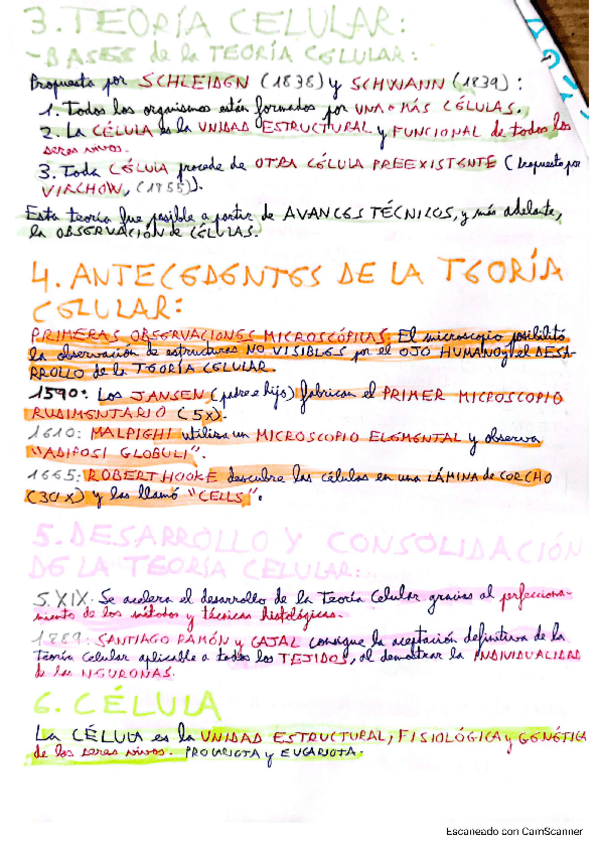 3. TEORÍA CELULAR:
- BASES de la TEORÍA CELULAR:
Propuesta por SCHLEIDEN (1838) y SCHWANN (1839):
1. Todos los organismos están formados por UNA o MÁS CÉLULAS.
2. LA CÉLULA es la UNIDAD ESTRUCTURAL y FUNCIONAL de todos los
seres vivos.
3. Toda CÉLULA procede de OTRA CÉLULA PREEXISTENTE (propuesto por
VIRCHOW, (1855)).
Esta teoría fue posible a partir de AVANCES TÉCNICOS, y más adelante,
la OBSERVACIÓN de CÉLULAS.
4. ANTECEDENTES DE LA TEORÍA
CELULAR:
PRIMERAS OBSERVACIONES MICROSCÓPICAS: El microscopio posibilitó
la observación de estructuras NO VISIBLES por el OJO HUMANO y el DESA-
RROLLO de la TEORÍA CELULAR.
1590: LOS JANSEN (padre e hijo) fabrican el PRIMER MICROSCOPIO
RUDIMENTARIO (5x).
1610: MALPIGHI utiliza un MICROSCOPIO ELEMENTAL y observa
"ADIPOSI GLOBULI".
1665: ROBERT HOOKE descubre las células en una LÁMINA de CORCHO
(30x) y las llamó "CELLS".
5. DESARROLLO Y CONSOLIDACIÓN
DE LA TEORÍA CELULAR:
S. XIX: Se acelera el desarrollo de la Teoría Celular gracias al perfecciona-
miento de los métodos y técnicas histológicas.
1889: SANTIAGO RAMÓN y CAJAL consigue la aceptación definitiva de la
Teoría Celular aplicable a todos los TEJIDOS, al demostrar la INDIVIDUALIDAD
de las NEURONAS.
6. CÉLULA
LA CÉLULA es la UNIDAD ESTRUCTURAL, FISIOLÓGICA y GENÉTICA
de los seres vivos. PROCARIOTA y EUCARIOTA.
Escaneado con CamScanner